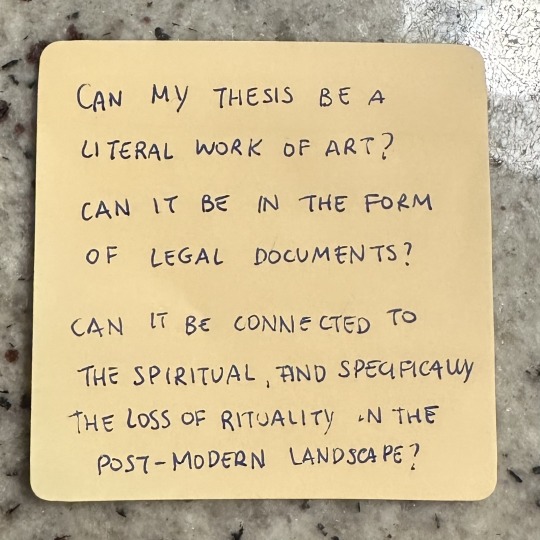 CAN MY THESIS BE A
LITERAL WORK OF ART?
CAN IT BE IN THE FORM
OF LEGAL DOCUMENTS?
CAN IT BE CONNECTED TO
THE SPIRITUAL, AND SPECIFICALLY
THE LOSS OF RITUALITY IN THE
POST-MODERN LANDSCAPE?